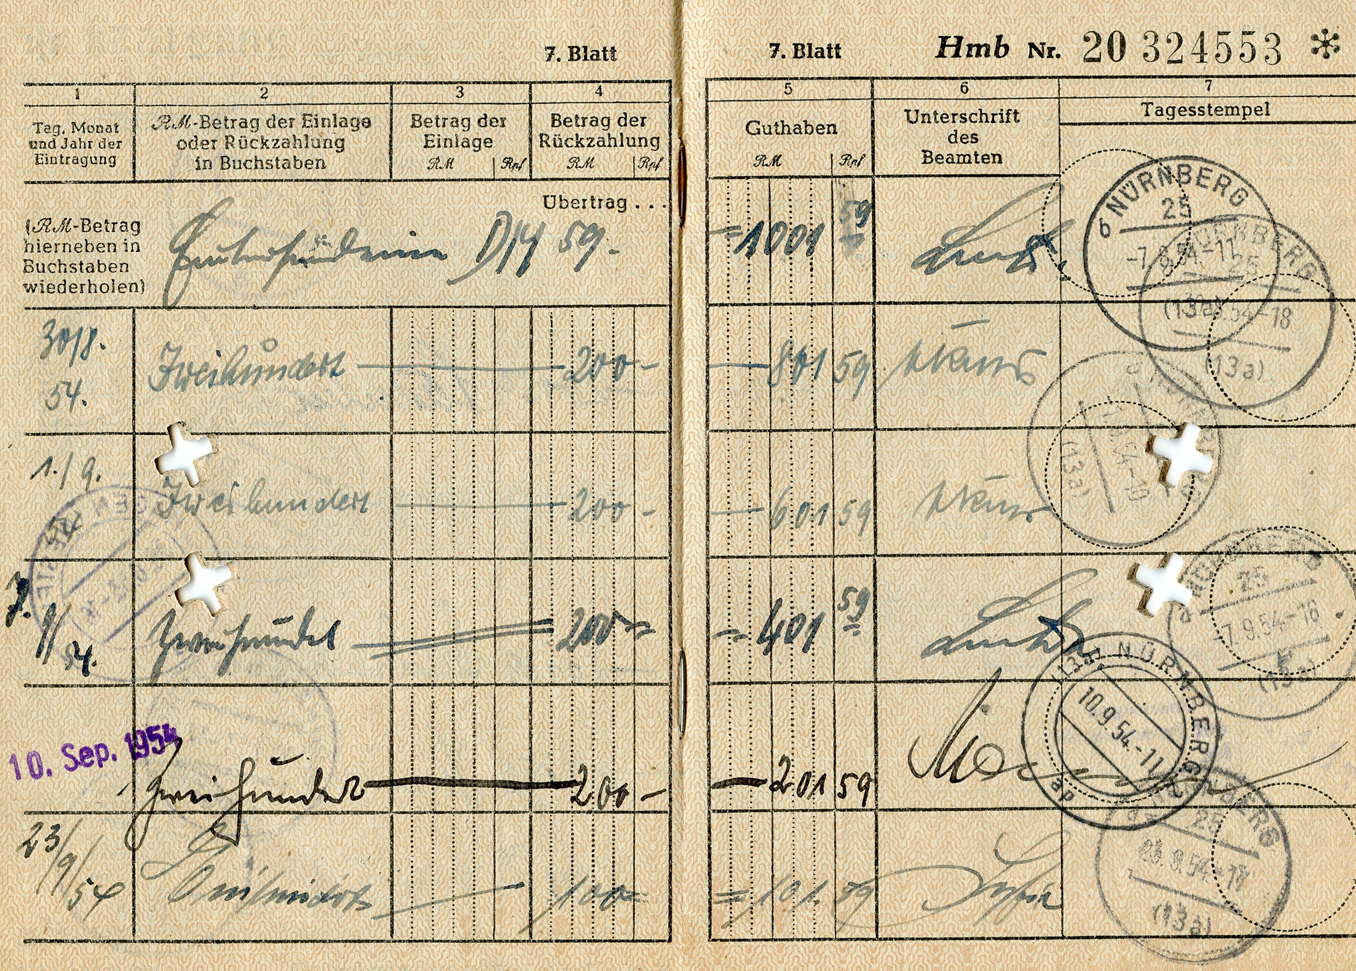 7. Blatt
7. Blatt Hmb Nr. 20 324553 *
1 2 3 4 5 6 7
Tag, Monat
und Jahr der
Eintragung
RM-Betrag der Einlage
oder Rückzahlung
in Buchstaben
Betrag der
Einlage
RM Rpf
Betrag der
Rückzahlung
RM Rpf
Guthaben
RM Rpf
Unterschrift
des
Beamten
Tagesstempel
Übertrag . . .
(RM-Betrag
hierneben in
Buchstaben
wiederholen)
59.
=1001 59
NÜRNBERG
25
-7.9.54.-11
(13a)
NÜRNBERG
25
54-18
(13a)
30/8.
54.
Zweihundert 200-
801 59
1./9.
Zweihundert 200-
601 59
54-10
(13a)
7.
9/
54.
Zweihundert 200
401 59
NÜRNBERG
25
-7.9.54-18
(13a)
10. Sep. 1954
Zweihundert 200-
201 59
(13a) NÜRNBERG
10.9.54.-11
23/
9/
54
100
=101.59
NÜRNBERG
25
(13a)